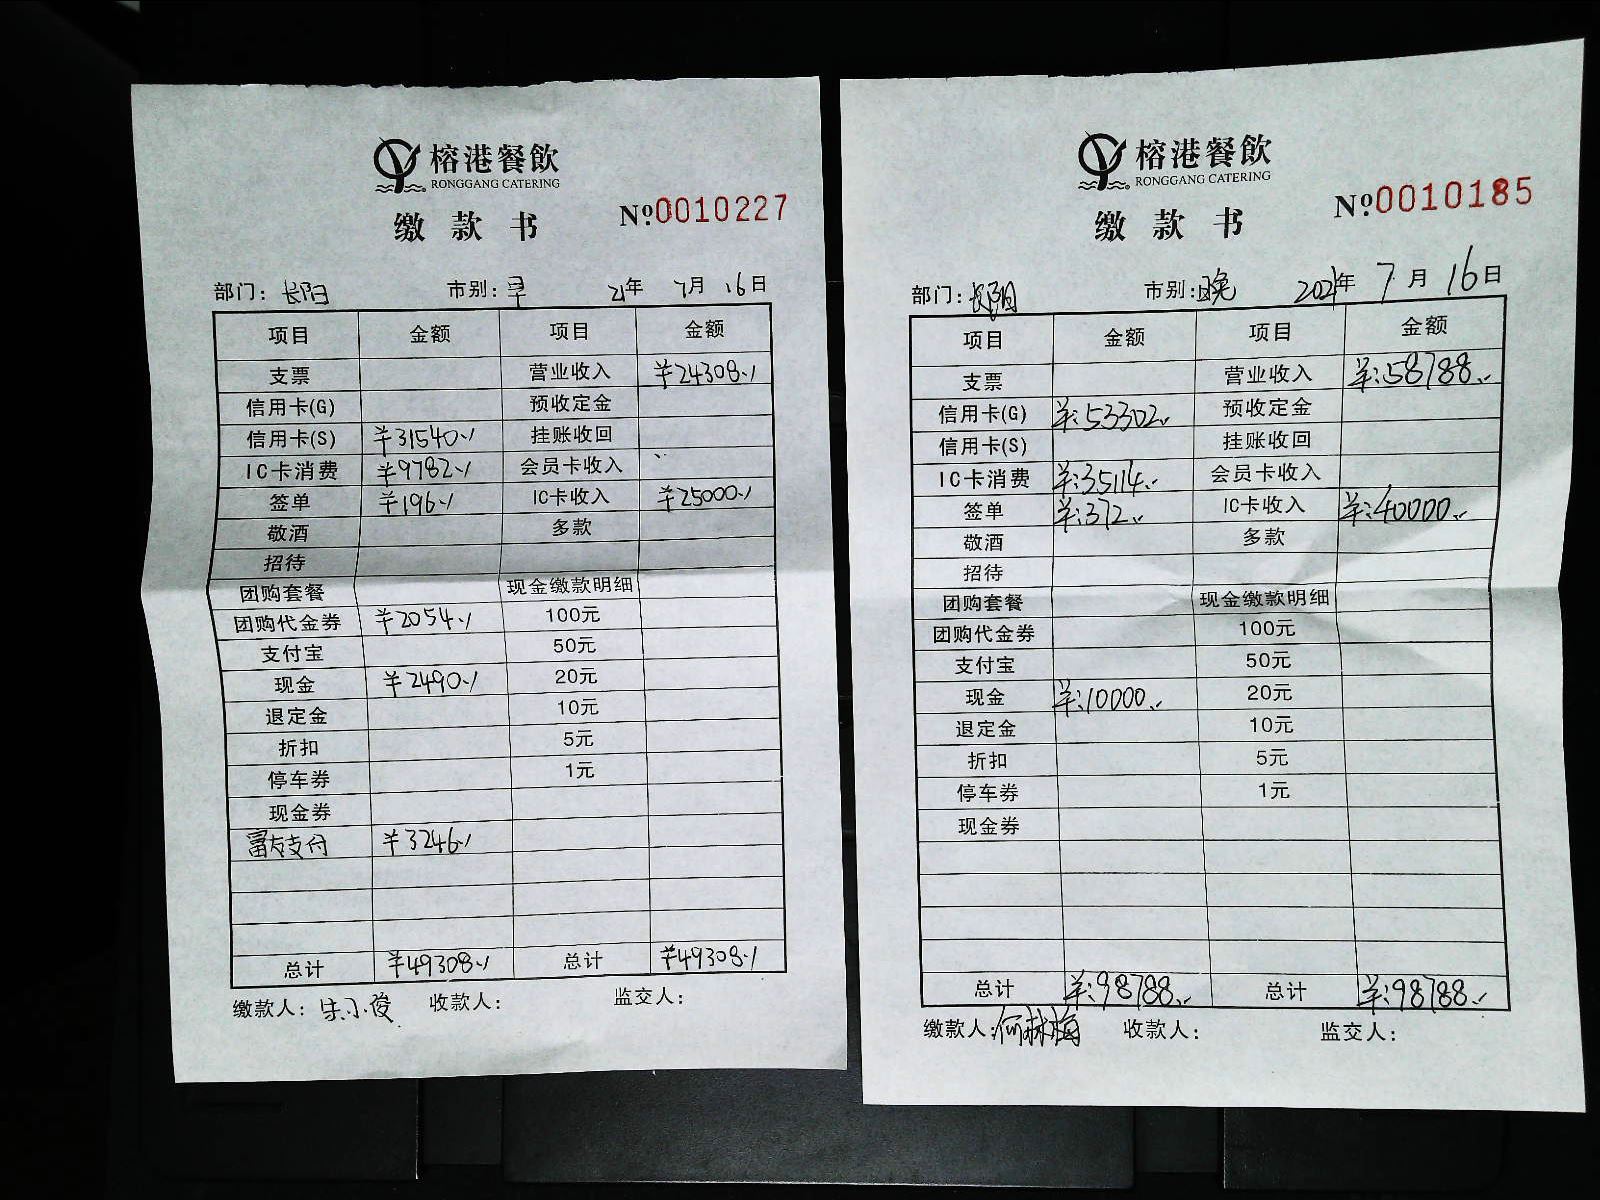 榕港餐飲
RONGGANG CATERING
缴款书 №0010227
部门：长阳 市别：早 21年 7月 16日
项目 金额 项目 金额
支票 营业收入 ¥24308.
信用卡(G) 预收定金
信用卡(S) ¥31540. 挂账收回
IC卡消费 ¥9782. 会员卡收入
签单 ¥196. IC卡收入 ¥25000.
敬酒 多款
招待
团购套餐 现金缴款明细
团购代金券 ¥2054. 100元
支付宝 50元
现金 ¥2490. 20元
退定金 10元
折扣 5元
停车券 1元
现金券
富友支付 ¥3246.
总计 ¥49308. 总计 ¥49308.
缴款人：朱小俊 收款人： 监交人：
榕港餐飲
RONGGANG CATERING
缴款书 №0010185
部门：长阳 市别：晚 2021年 7月 16日
项目 金额 项目 金额
支票 营业收入 ¥:58788.
信用卡(G) ¥:53302. 预收定金
信用卡(S) 挂账收回
IC卡消费 ¥:35114. 会员卡收入
签单 ¥:372. IC卡收入 ¥:40000.
敬酒 多款
招待
团购套餐 现金缴款明细
团购代金券 100元
支付宝 50元
现金 ¥:10000. 20元
退定金 10元
折扣 5元
停车券 1元
现金券
总计 ¥:98788. 总计 ¥:98788.
缴款人：何林梅 收款人： 监交人：